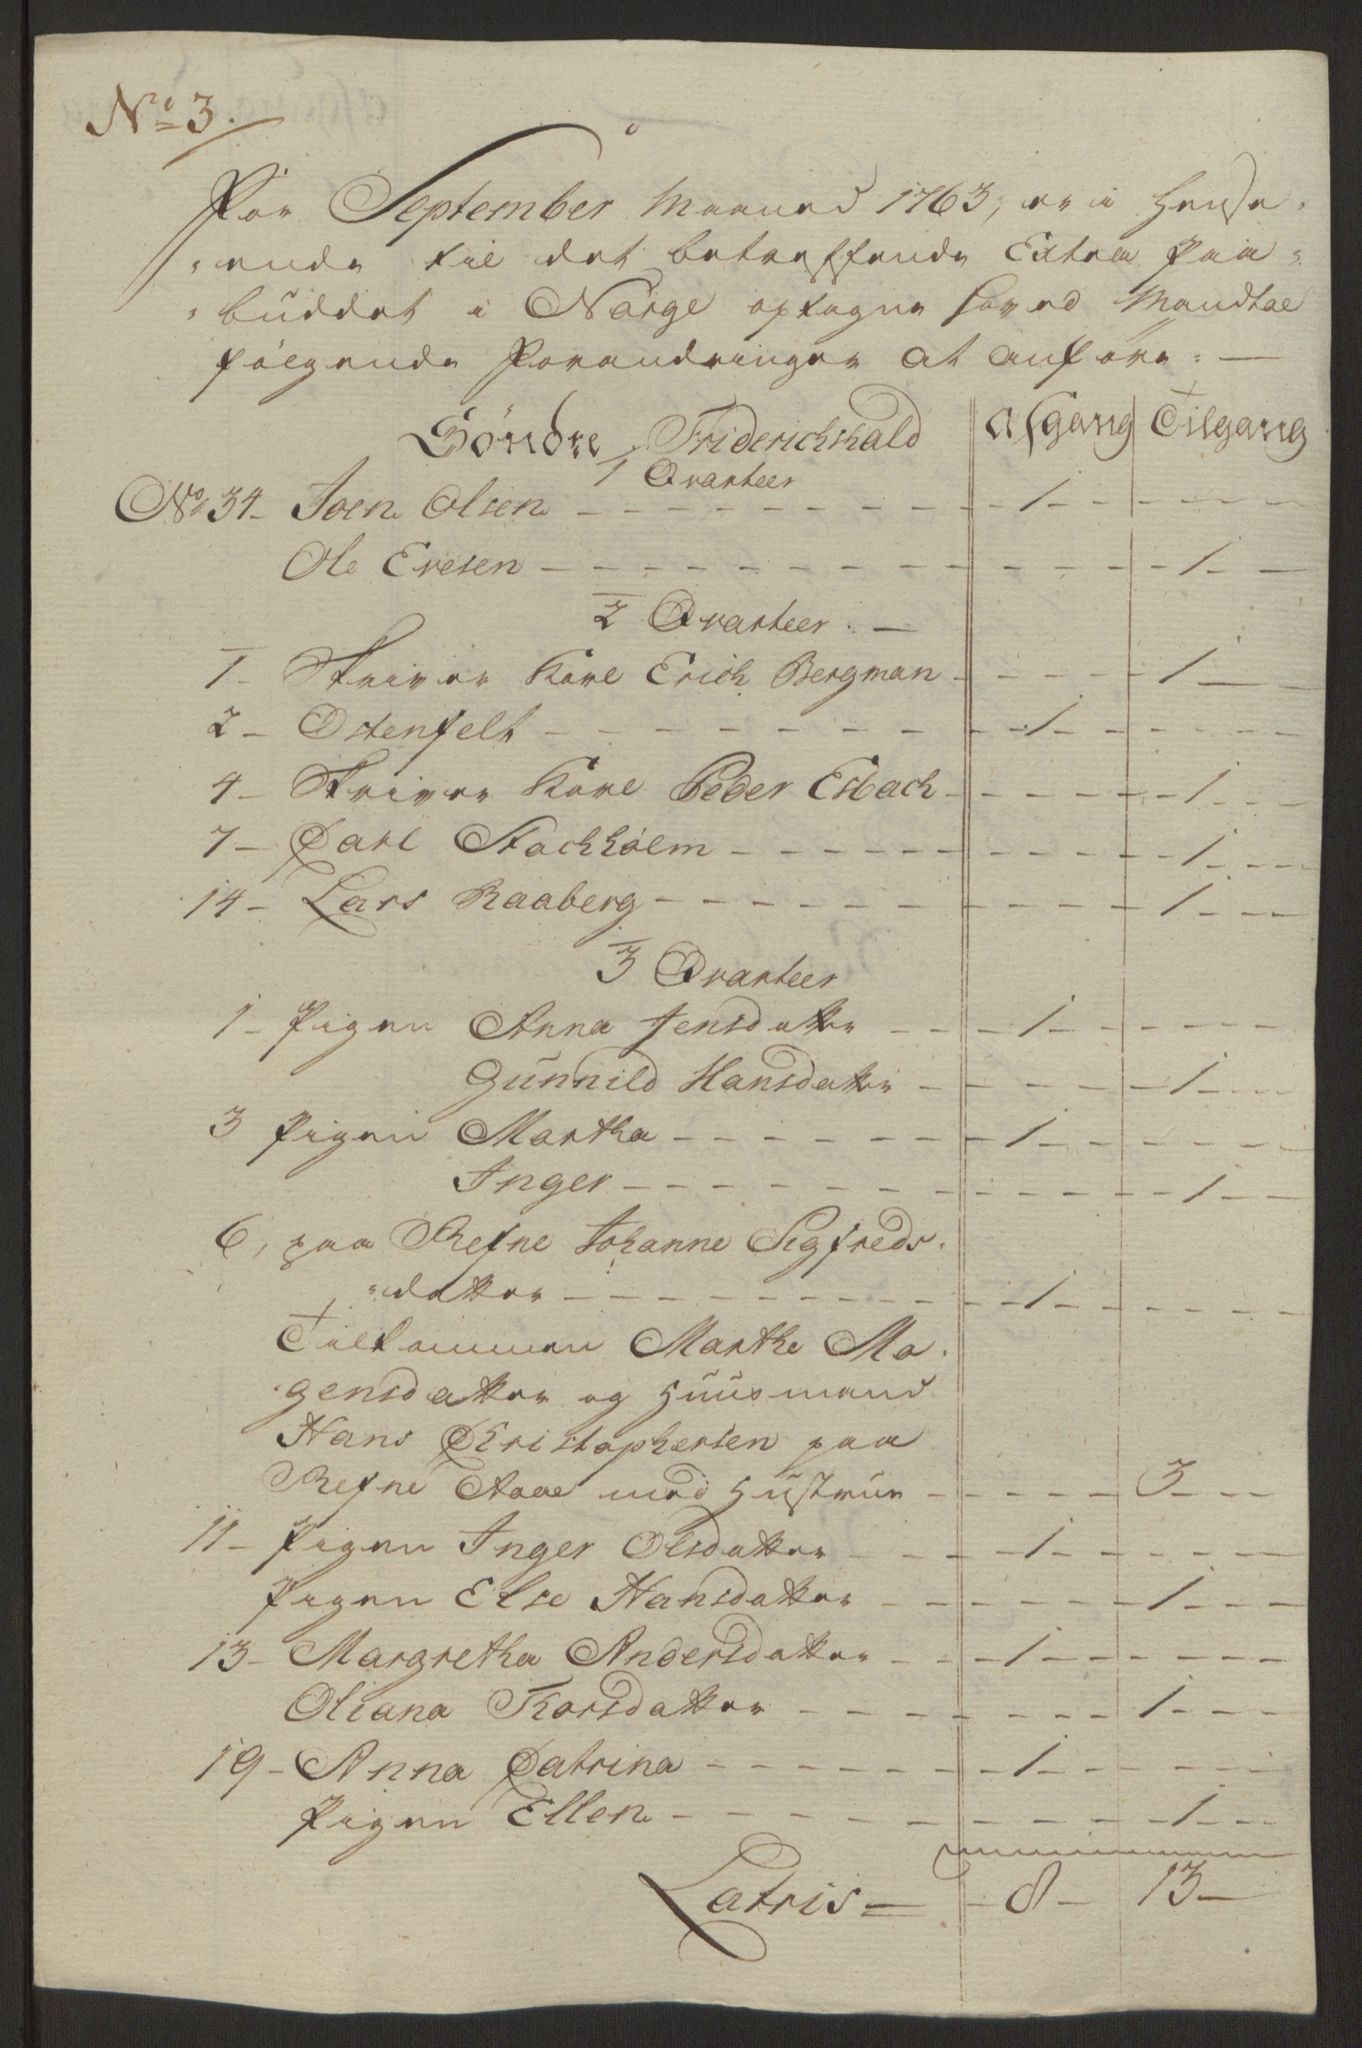 No 3.
For September Maaned 1763, er i Hense-
-ende til det betreffende Extra Paa-
-buddet i Norge optagne Hoved Mandtal
følgende Forandringer at anføre. —
Söndre Friderichshald Afgang Tilgang
1 Qvarteer
No 34 - Joen Olsen - - - 1 - - -
Ole Evesen - - - 1 -
2 Qvarteer. —
1 - Skriver Karl Erich Bergman - - - 1 -
2 - Ostenfelt - - - 1 - - -
4 - Skriver Karl Peder Esbach - - - 1 - - -
7 - Carl Stochholm - - - 1 - - -
14 - Lars Raaberg - - - 1 - - -
3 Qvarteer
1 - Pigen Anna Jensdatter - - - 1 - - -
Gunnild Hansdatter - - - 1 - - -
3 Pigen Martha - - - 1 - - -
Inger - - - 1 - - -
6, paa Refne Johanne Sigfreds-
-datter - - - 1 - - -
Tilkommen Marthe Mo-
-gensdatter og Huusmand
Hans Christophersen paa
Refne med Hustrue - - - 3 - - -
11 - Pigen Inger Olsdatter - - - 1 - - -
Pigen Else Hansdatter - - - 1 - - -
13 - Margretha Andersdatter - - - 1 - - -
Oliana Thorsdatter - - - 1 - - -
19 - Anna Catrina - - - 1 - - -
Pigen Ellen - - - 1 - - -
Latris = - 8 - 13 -